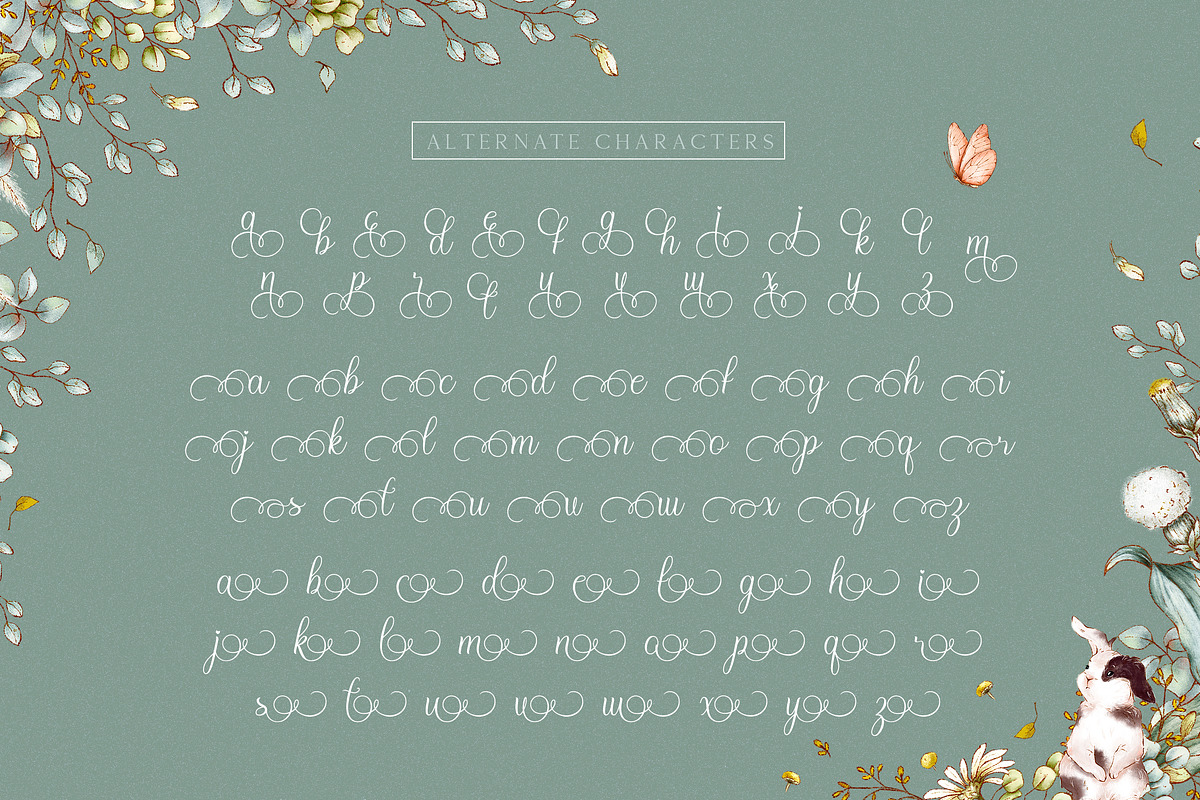 ALTERNATE CHARACTERS
a b c d e f g h i j k l m
n p r t u v w x y z
a b c d e f g h i
j k l m n o p q r
s t u v w x y z
a b c d e f g h i
j k l m n o p q r
s t u v w x y z